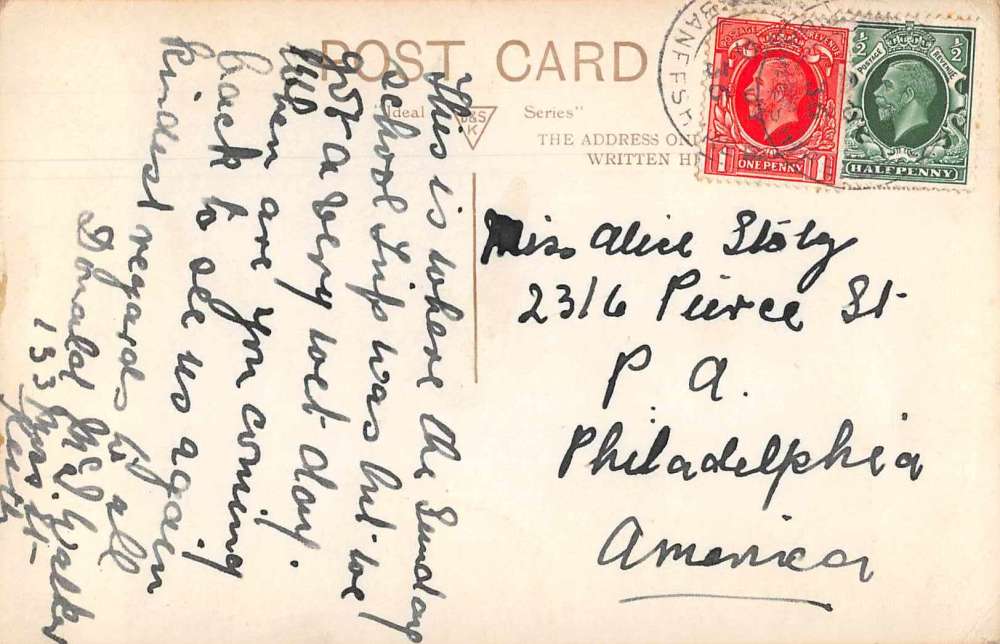 POST CARD
"Ideal Series"
D&S
K
THE ADDRESS
WRITTEN
BANFFSH
POSTAGE REVENUE
1 ONE PENNY 1
½ ½
POSTAGE REVENUE
HALFPENNY
This is where the Sunday
school trip was but we
got a very wet day.
When are you coming
back to see us again
Kindest regards to all
Donald Walker
133 Moss St
Keith
Miss Alice Stolz
2316 Pierce St
P A.
Philadelphia
America